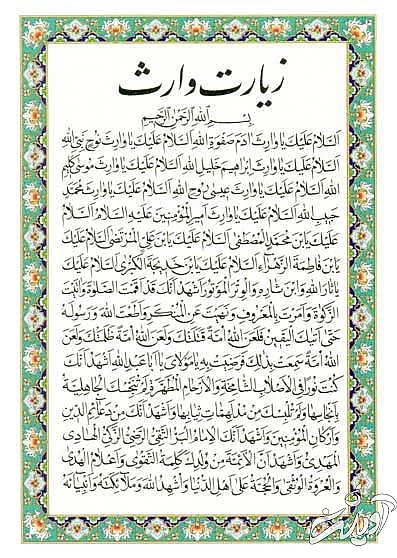 زیارت وارث
بِسْمِ اللهِ الرَّحْمٰنِ الرَّحیمِ
اَلسَّلامُ عَلَیْكَ یا وارِثَ ادَمَ صَفْوَةِ اللهِ اَلسَّلامُ عَلَیْكَ یا وارِثَ نُوحٍ نَبِیِّ اللهِ
اَلسَّلامُ عَلَیْكَ یا وارِثَ اِبْراهیمَ خَلیلِ اللهِ اَلسَّلامُ عَلَیْكَ یا وارِثَ مُوسٰی كَلیمِ
اللهِ اَلسَّلامُ عَلَیْكَ یا وارِثَ عیسٰی رُوحِ اللهِ اَلسَّلامُ عَلَیْكَ یا وارِثَ مُحَمَّدٍ
حَبیبِ اللهِ اَلسَّلامُ عَلَیْكَ یا وارِثَ اَمیرِ الْمُؤْمِنینَ عَلَیْهِ السَّلامُ اَلسَّلامُ
عَلَیْكَ یَابْنَ مُحَمَّدٍ الْمُصْطَفٰی اَلسَّلامُ عَلَیْكَ یَابْنَ عَلِیٍّ الْمُرْتَضٰی اَلسَّلامُ عَلَیْكَ
یَابْنَ فاطِمَةَ الزَّهْراءِ اَلسَّلامُ عَلَیْكَ یَابْنَ خَدیجَةَ الْكُبْرٰی اَلسَّلامُ عَلَیْكَ
یا ثارَ اللهِ وَابْنَ ثارِهِ وَالْوِتْرَ الْمَوْتُورَ اَشْهَدُ اَنَّكَ قَدْ اَقَمْتَ الصَّلٰوةَ وَاتَیْتَ
الزَّكٰوةَ وَاَمَرْتَ بِالْمَعْرُوفِ وَنَهَیْتَ عَنِ الْمُنْكَرِ وَاَطَعْتَ اللهَ وَرَسُولَهُ
حَتّٰی اَتیٰكَ الْیَقینُ فَلَعَنَ اللهُ اُمَّةً قَتَلَتْكَ وَلَعَنَ اللهُ اُمَّةً ظَلَمَتْكَ وَلَعَنَ
اللهُ اُمَّةً سَمِعَتْ بِذٰلِكَ فَرَضِیَتْ بِهِ یا مَوْلایَ یا اَبا عَبْدِ اللهِ اَشْهَدُ اَنَّكَ
كُنْتَ نُورًا فِی الْاَصْلابِ الشّامِخَةِ وَالْاَرْحامِ الْمُطَهَّرَةِ لَمْ تُنَجِّسْكَ الْجاهِلِیَّةُ
بِاَنْجاسِها وَلَمْ تُلْبِسْكَ مِنْ مُدْلَهِمّاتِ ثِیابِها وَاَشْهَدُ اَنَّكَ مِنْ دَعائِمِ الدّینِ
وَاَرْكانِ الْمُؤْمِنینَ وَاَشْهَدُ اَنَّكَ الْاِمامُ الْبَرُّ التَّقِیُّ الرَّضِیُّ الزَّكِیُّ الْهادِی
الْمَهْدِیُّ وَاَشْهَدُ اَنَّ الْاَئِمَّةَ مِنْ وُلْدِكَ كَلِمَةُ التَّقْوٰی وَاَعْلامُ الْهُدٰی
وَالْعُرْوَةُ الْوُثْقٰی وَالْحُجَّةُ عَلٰی اَهْلِ الدُّنْیا وَاُشْهِدُ اللهَ وَمَلائِكَتَهُ وَاَنْبِیائَهُ